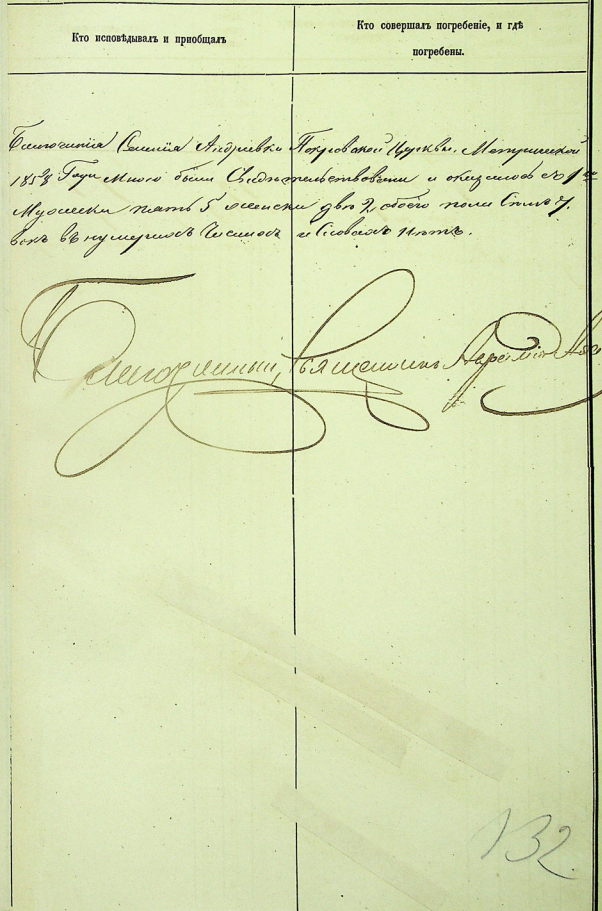 Кто исповѣдывалъ и пріобщалъ
Кто совершалъ погребеніе, и гдѣ
погребены.
Андріевки Покровской Церкви. Метрической
1858 Года мною были Свидѣтельствованы и оказалось
Мужеска пять 5 женска двѣ 2, обоего пола 7.
въ нумерахъ Числахъ и Словахъ нѣтъ.
Благочинный, Священникъ
132